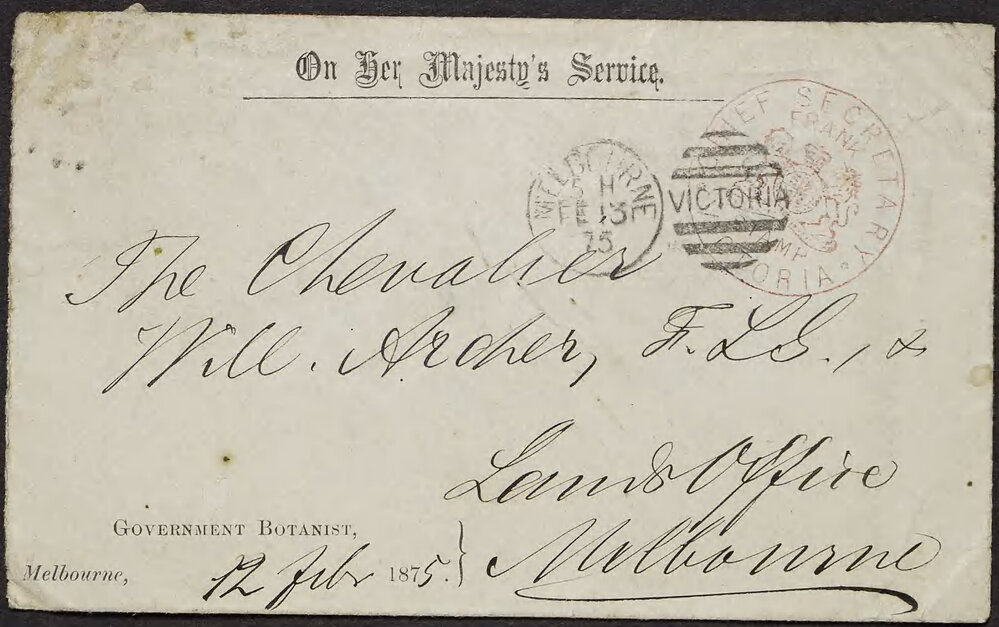 On Her Majesty's Service.
CHIEF SECRETARY
FRANK STAMP
VICTORIA
MELBOURNE
H
FE 13
75
VICTORIA
The Chevalier
Will. Archer, F.L.S., &
Lands Office
Melbourne
GOVERNMENT BOTANIST,
Melbourne, 12 febr 1875.